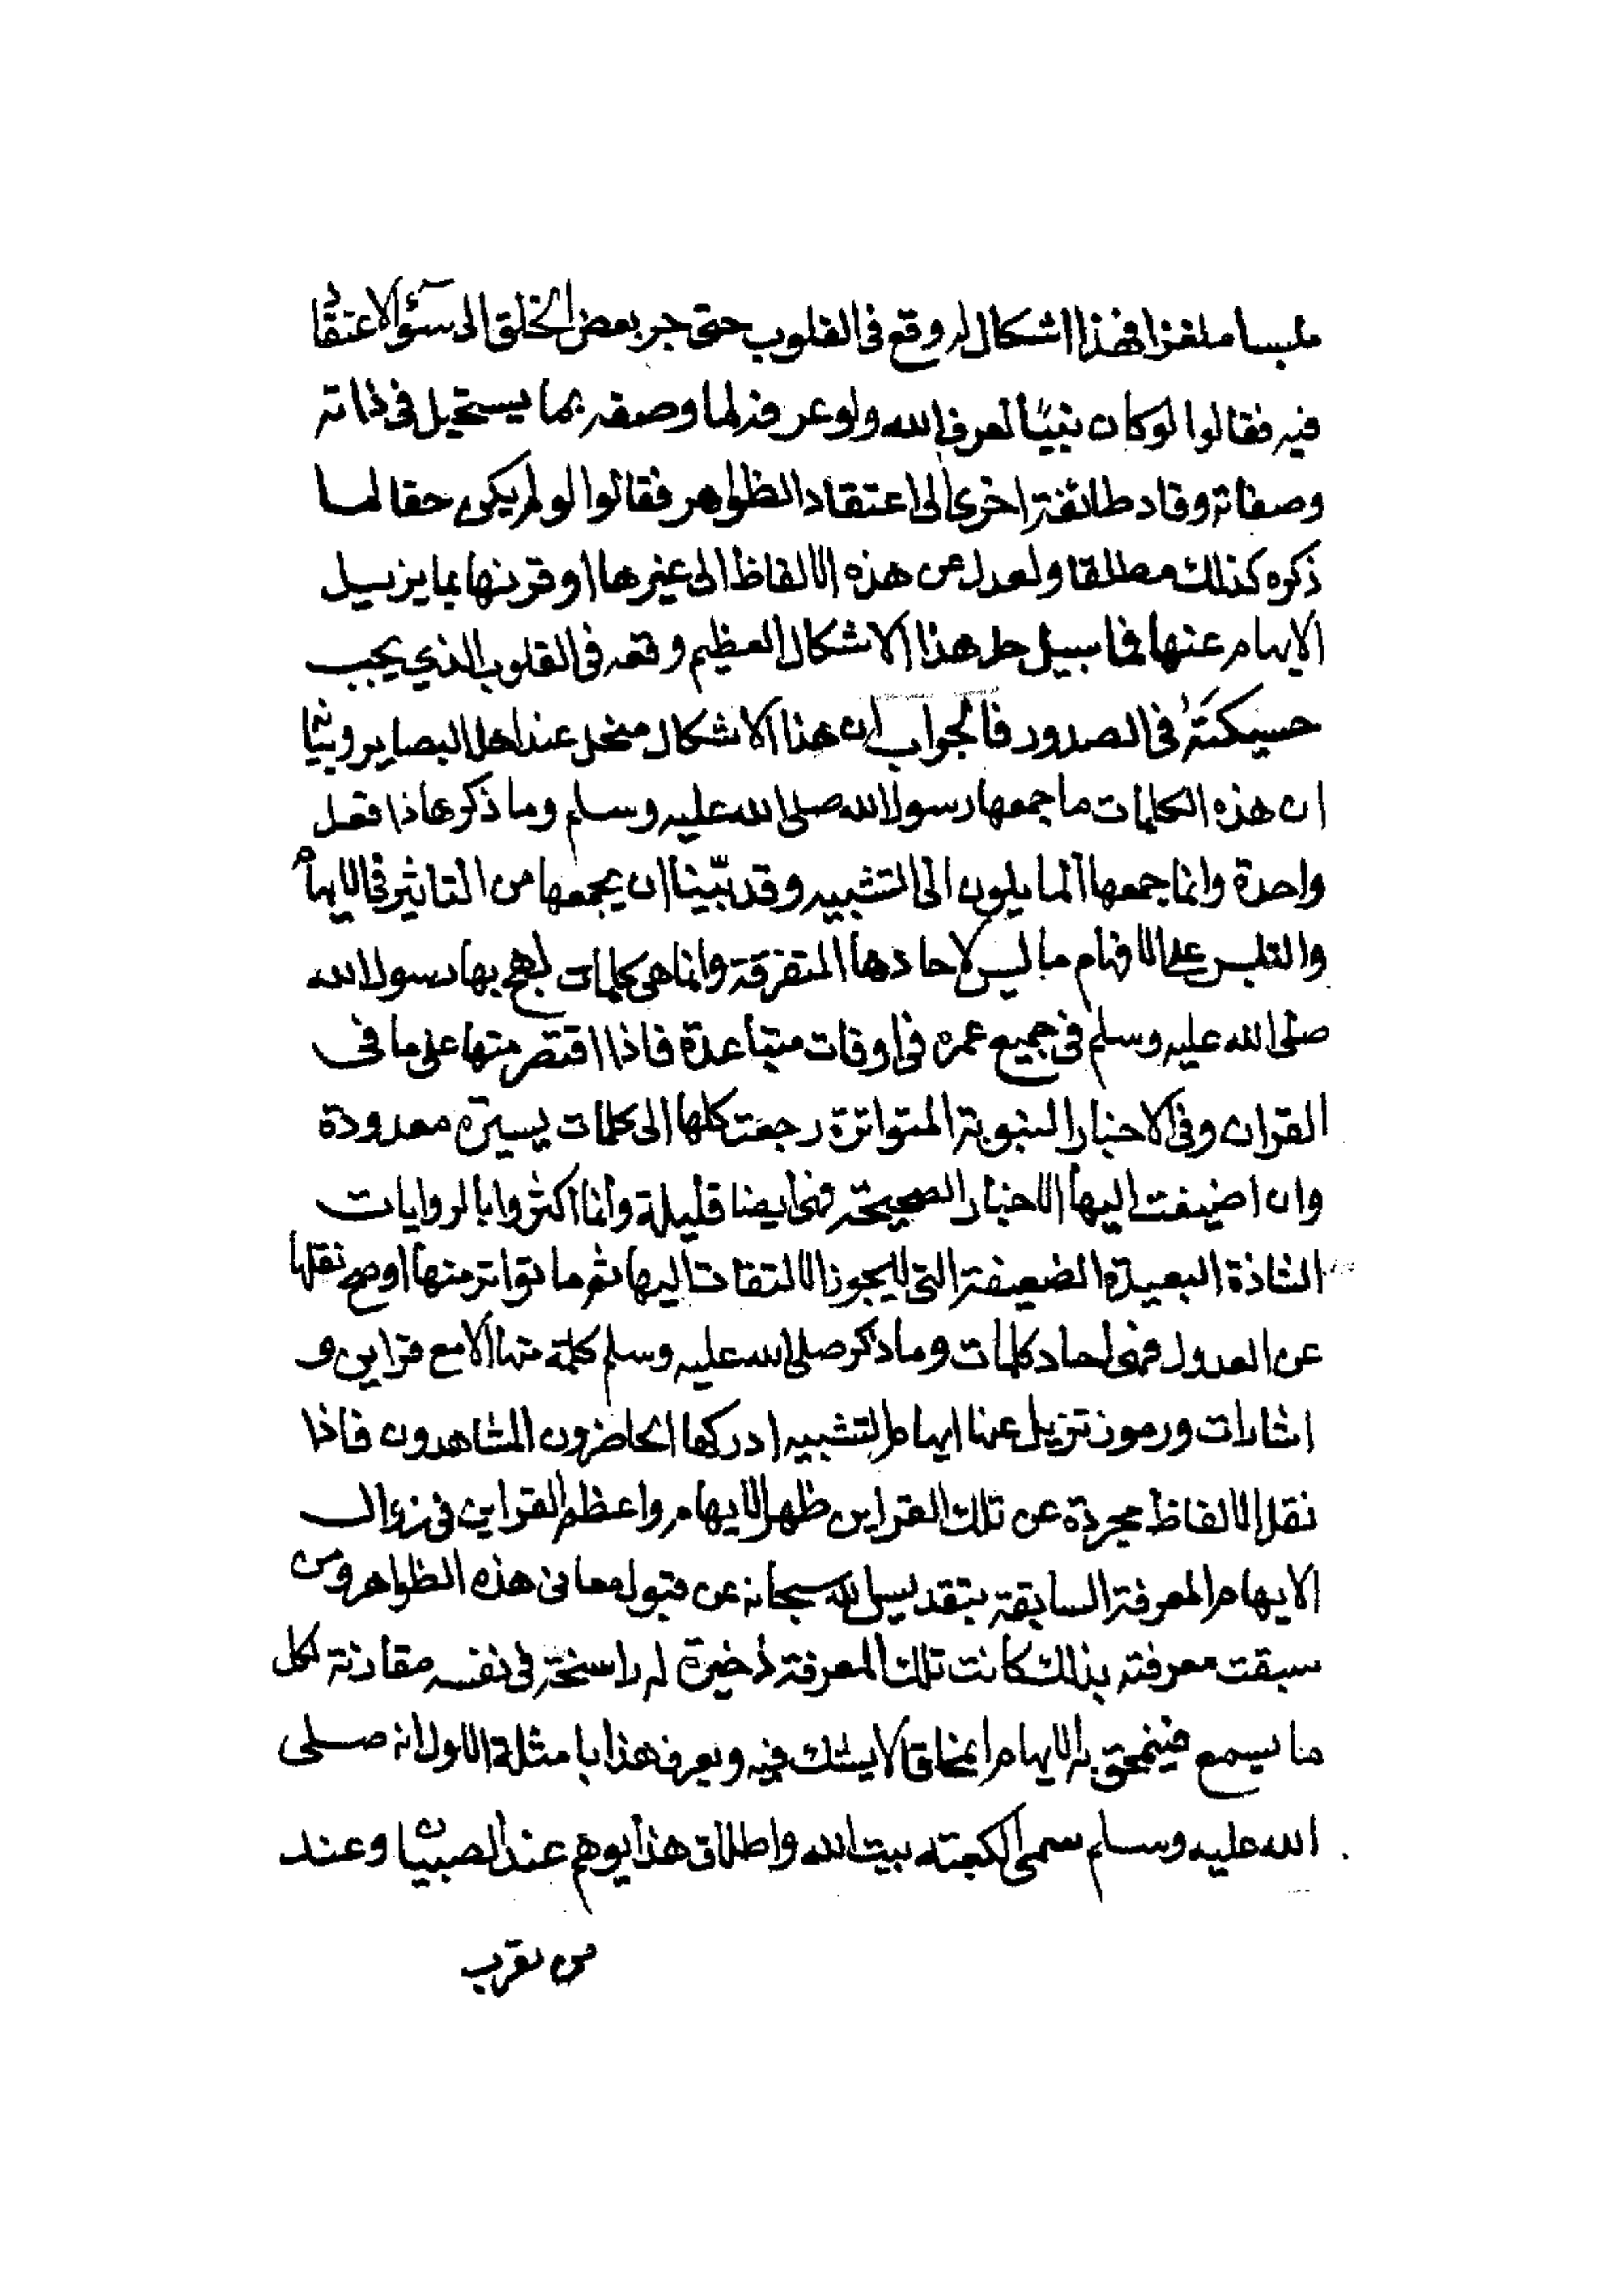 ملبسا ملغزا فهذا اشكال له وقع فى القلوب حتى جر بعض الخلق الى سؤ الاعتقاد
فيه فقالوا لوكان نبيّا لعرف الله ولو عرفه لما وصفه بما يستحيل فى ذاته
وصفاته وقاد طائفة اخرى الى اعتقاد الظواهر فقالوا لو لم يكن حقا لما
ذكره كذلك مطلقا ولعدل عن هذه الالفاظ الى غيرها او قرنها بما يزيل
الايهام عنها فما سبيل حل هذا الاشكال العظيم وقعه فى القلوب الذي يجب
حسيكته فى الصدور فالجواب ان هذا الاشكال منحل عند اهل البصاير وبيانه
ان هذه الكلمات ما جمعها رسول الله صلى الله عليه وسلم وما ذكرها دفعة
واحدة وانما جمعها المايلون الى التشبيه وقد بيّنا ان بجمعها من التاثير فى الايهام
والتلبس على الافهام ما ليس لاحادها المتفرقة وانما هى كلمات لهج بها رسول الله
صلى الله عليه وسلم فى جميع عمره فى اوقات متباعدة فاذا اقتصر منها على ما فى
القران وفى الاخبار النبوية المتواترة رجعت كلها الى كلمات يسيرة معدودة
وان اضيفت اليها الاخبار الصحيحة فهى ايضا قليلة وانما اكثروا بالروايات
الشاذة البعيدة الضعيفة التى لا يجوز الالتفات اليها ثم ما تواتر منها او صح نقلها
عن العدول فهى احاد كلمات وما ذكر صلى الله عليه وسلم كلمة منها الا مع قراين و
اشارات ورموز تزيل عنها ايهام التشبيه ادركها الحاضرون المشاهدون فاذا
نقل الالفاظ مجردة عن تلك القراين ظهر الايهام واعظم القراين فى زوال
الايهام المعرفة السابقة بتقديس الله سبحانه عن قبول معانى هذه الظواهر ومن
سبقت معرفته بذلك كانت تلك المعرفة ذخيرة له راسخة فى نفسه مقارنة لكل
ما يسمع فينمحق به الايهام انمحاقا لا يشك فيه ويعرف هذا بامثلة الاول انه صلى
الله عليه وسلم سمى الكعبته بيت الله واطلاق هذا يوهم عند الصبيان وعند
من تقرب